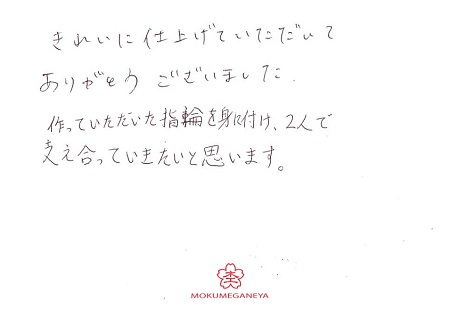 きれいに仕上げていただいて
ありがとう ございました.
作っていただいた指輪を身に付け、2人で
支え合っていきたいと思います。
杢
MOKUMEGANEYA